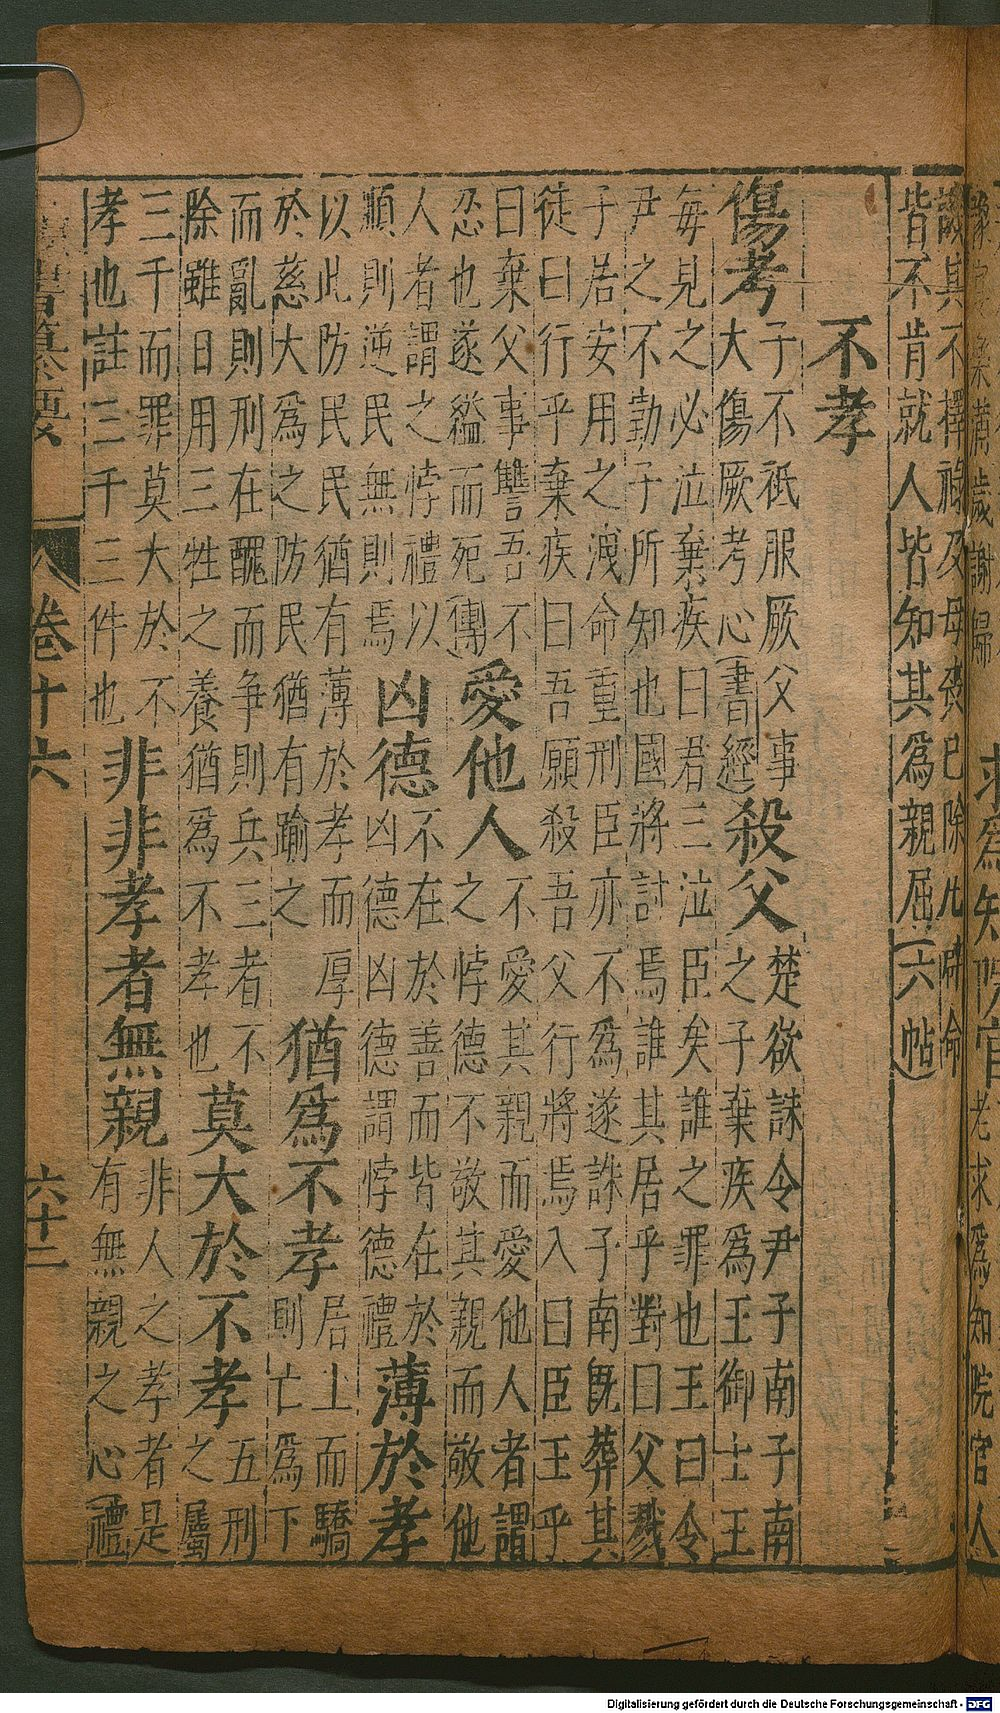 求為知院官 老求為知院官人
其不擇祿及母喪已除凡辟命
皆不肯就人皆知其為親屈(六帖)
不孝
傷考 子不祗服厥父事
大傷厥考心(書經) 殺父 楚欲誅令尹子南子南
之子棄疾為王御士王
每見之必泣棄疾曰君三泣臣矣誰之罪也王曰令
尹之不勤子所知也國將討焉誰其居乎對曰父戮
子居安用之洩命重刑臣亦不為遂誅子南既葬其
徒曰行乎棄疾曰吾願殺吾父行將焉入曰臣王乎
曰棄父事讐吾不
忍也遂縊而死(傳 愛他人 不愛其親而愛他人者謂
之悖德不敬其親而敬他
人者謂之悖禮以
順則逆民無則焉 凶德 不在於善而皆在於
凶德凶德謂悖德禮 薄於孝
以此防民民猶有薄於孝而厚
於慈大為之防民猶有踰之 猶為不孝 居上而驕
則亡為下
而亂則刑在醜而争則兵三者不
除雖日用三牲之養猶為不孝也 莫大於不孝 五刑
之屬
三千而罪莫大於不
孝也註三千三件也 非非孝者無親 非人之孝者是
有無親之心(禮
書纂要 卷十六 六十二
Digitalisierung gefördert durch die Deutsche Forschungsgemeinschaft - DFG